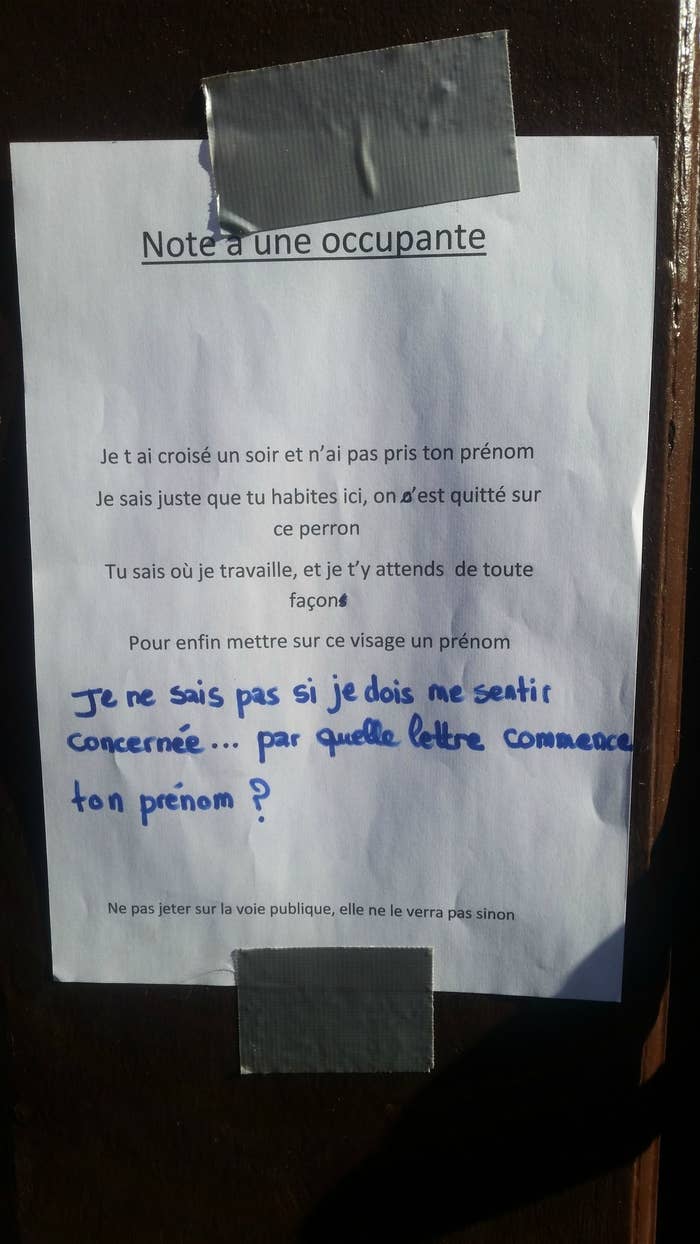 Note à une occupante
Je t ai croisé un soir et n'ai pas pris ton prénom
Je sais juste que tu habites ici, on s'est quitté sur
ce perron
Tu sais où je travaille, et je t'y attends de toute
façon
Pour enfin mettre sur ce visage un prénom
Je ne sais pas si je dois me sentir
concernée... par quelle lettre commence
ton prénom ?
Ne pas jeter sur la voie publique, elle ne le verra pas sinon